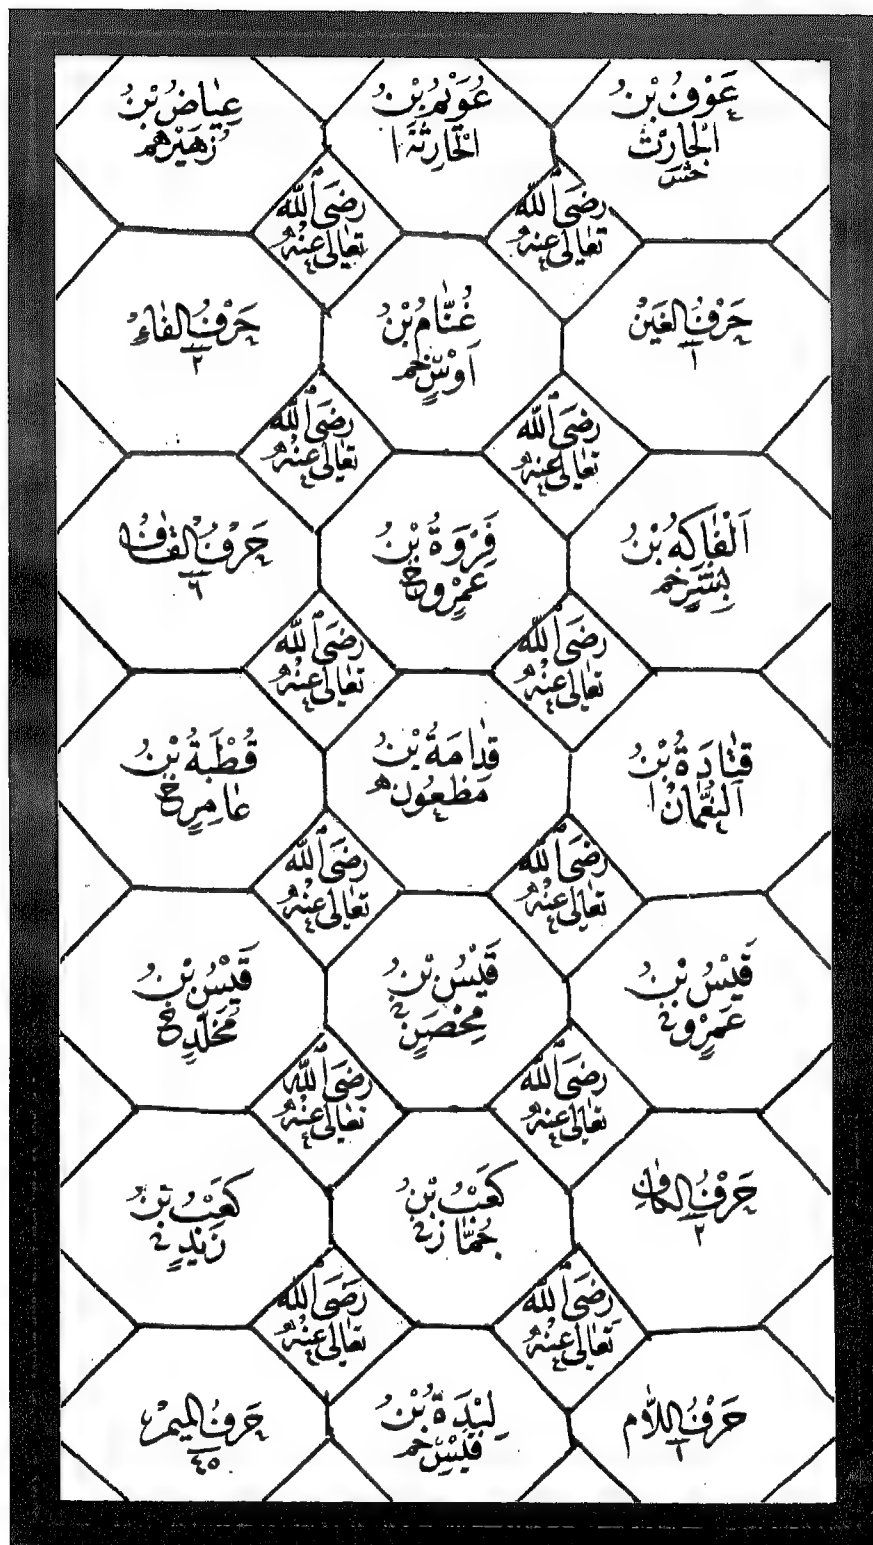 عَوْفُ بْنُ
الْحَارِثِ
خَسَ
عُوَيْمُ بْنُ
الْحَارِثَةِ ا
عِيَاضُ بْنُ
زُهَيْرٍ هم
رَضِىَ اللّٰه
تَعَالٰى عَنْهُ
رَضِىَ اللّٰه
تَعَالٰى عَنْهُ
حَرْفُ الغَيْن
١
غَنَّامُ بْنُ
اَوْسٍ خم
حَرْفُ الفَاءِ
٢
رَضِىَ اللّٰه
تَعَالٰى عَنْهُ
رَضِىَ اللّٰه
تَعَالٰى عَنْهُ
اَلْفَاكِهُ بْنُ
بِشْرٍ خم
فَرْوَةُ بْنُ
عَمْرٍو خ
حَرْفُ القَاف
٦
رَضِىَ اللّٰه
تَعَالٰى عَنْهُ
رَضِىَ اللّٰه
تَعَالٰى عَنْهُ
قَتَادَةُ بْنُ
النُّعْمَانْ ا
قُدَامَةُ بْنُ
مَظْعُونٍ ه
قُطْبَةُ بْنُ
عَامِرٍ خ
رَضِىَ اللّٰه
تَعَالٰى عَنْهُ
رَضِىَ اللّٰه
تَعَالٰى عَنْهُ
قَيْسُ بْنُ
عَمْرٍو
قَيْسُ بْنُ
مِحْصَنٍ
قَيْسُ بْنُ
مُخَلَّدٍ خ
رَضِىَ اللّٰه
تَعَالٰى عَنْهُ
رَضِىَ اللّٰه
تَعَالٰى عَنْهُ
حَرْفُ الكَاف
٢
كَعْبُ بْنُ
جُمَّازٍ
كَعْبُ بْنُ
زَيْدٍ
رَضِىَ اللّٰه
تَعَالٰى عَنْهُ
رَضِىَ اللّٰه
تَعَالٰى عَنْهُ
حَرْفُ اللَّام
١
لِبْدَةُ بْنُ
قَيْسٍ خم
حَرفُ المِيمْ
٤٥